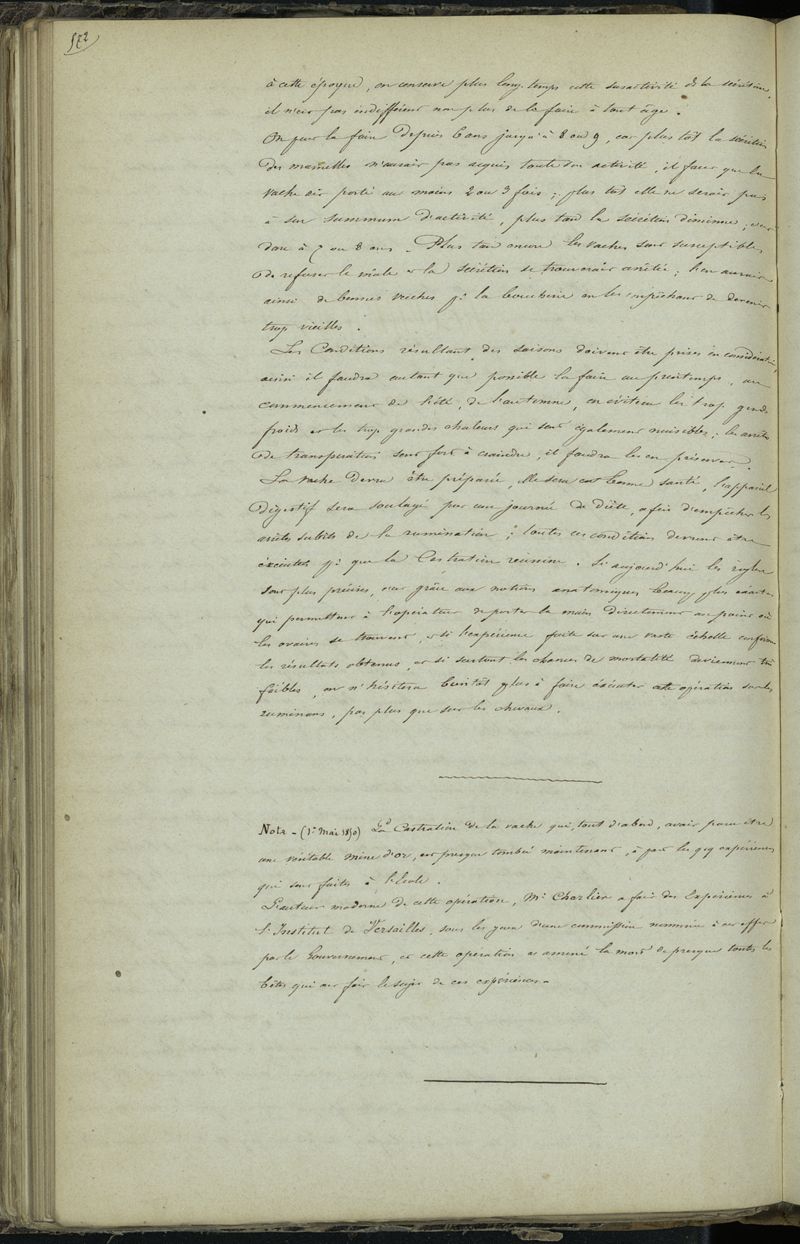 572
à cette époque, on conserve plus long-temps cette suractivité de la sécrétion,
il n'est pas indifférent non plus de la faire à tout âge.
On peut la faire depuis 6 ans jusqu'à 8 ou 9, car plus tôt la sécrétion
des mamelles n'aurait pas acquis toute son activité, il faut que la
vache ait porté au moins 2 ou 3 fois; plus tôt elle ne serait pas
à son summum d'activité, plus tard la sécrétion diminue, c'est
donc à 7 ou 8 ans. Plus tard encore les vaches sont susceptibles
de refuser le mâle et la sécrétion se trouverait arrêtée; l'on aurait
ainsi de bonnes vaches pr la boucherie en les empêchant de devenir
trop vieilles.
Les Conditions résultant des saisons doivent être prises en considération,
ainsi il faudra autant que possible la faire au printemps, au
commencement de l'été, de l'automne, en éviter les trop grands
froids et les trop grandes chaleurs qui sont également nuisibles; les arrêts
de transpiration sont fort à craindre, il faudra les en préserver.
La vache devra être préparée, elle sera en bonne santé, l'appareil
digestif sera soulagé par une journée de diète, afin d'empêcher les
arrêts subits de la rumination; toutes ces conditions devront être
éxécutées pr que la Castration réussisse. Si aujourd'hui les règles
sont plus précises, c'est grâce aux notions anatomiques beaucp plus exactes
qui permettent à l'opérateur de porter la main directement au point où
les ovaires se trouvent, et si l'expérience faite sur une vaste échelle confirme
les résultats obtenus, et si surtout les chances de mortalité deviennent très
faibles, on n'hésitera bientôt plus à faire éxécuter cette opération sur les
ruminans, pas plus que sur les chevaux.
Nota - (1er Mai 1850) La Castration de la vache qui, tout d'abord, avait paru être
une véritable mine d'or, est presque tombée maintenant, à part les qq expériences
qui sont faites à l'Ecole.
L'auteur moderne de cette opération, Mr Charlier a fait des Expériences à
l'Institut de Versailles, sous les yeux d'une commission nommée à cet effet
par le Gouvernement, et cette opération a amené la mort de presque toutes les
bêtes qui ont fait le sujet de ces expériences.